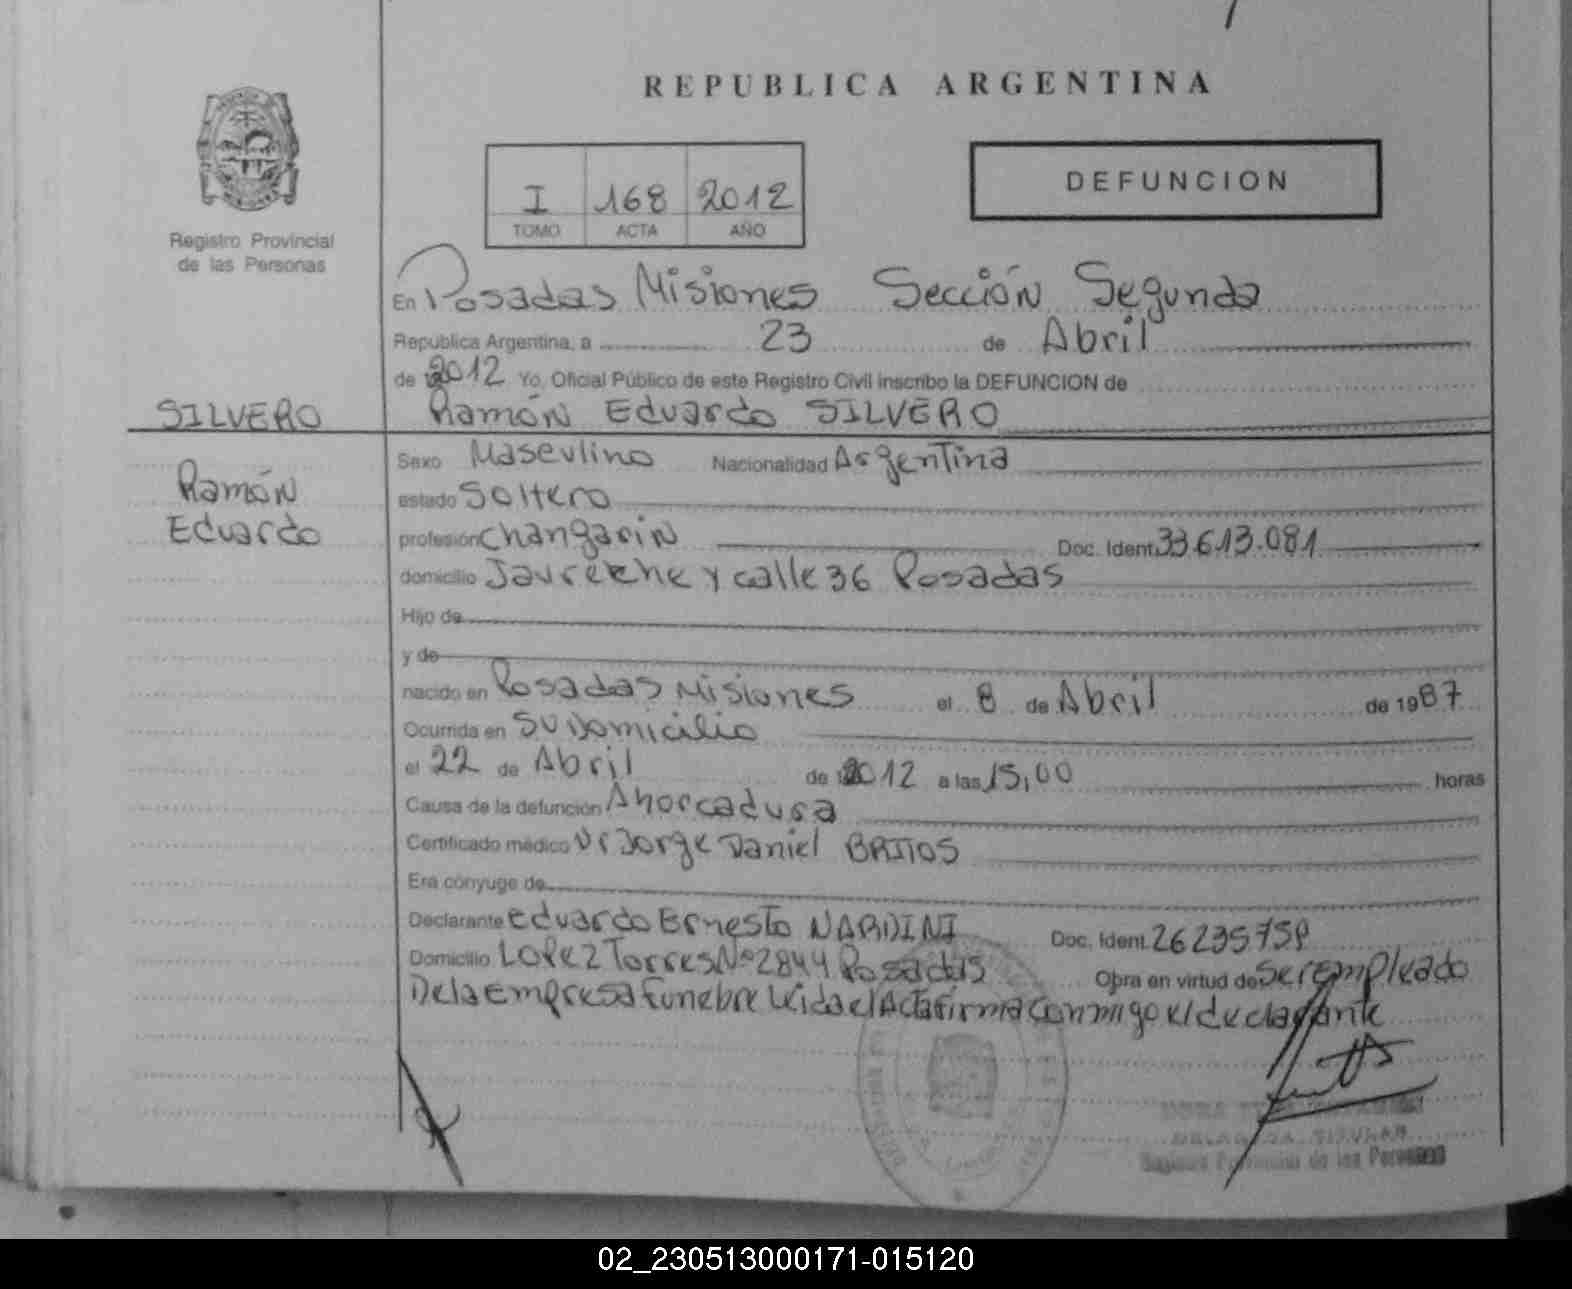 REPUBLICA ARGENTINA
I 168 2012
TOMO ACTA AÑO
DEFUNCION
Registro Provincial
de las Personas
En Posadas Misiones Sección Segunda
Republica Argentina, a 23 de Abril
de 2012 Yo, Oficial Público de este Registro Civil inscribo la DEFUNCION de
SILVERO Ramón Eduardo SILVERO
Ramón
Eduardo
Sexo Masculino Nacionalidad Argentina
estado Soltero
profesión Changarin Doc. Ident. 33.613.081
domicilio Jaureche y calle 36 Posadas
Hijo de
y de
nacido en Posadas Misiones el 8 de Abril de 1987
Ocurrida en Su Domicilio
el 22 de Abril de 2012 a las 15,00 horas
Causa de la defunción Ahorcadura
Certificado médico Dr Jorge Daniel BRITOS
Era cónyuge de
Declarante Eduardo Ernesto NARDINI Doc. Ident. 26235759
Domicilio Lopez Torres Nº 2844 Posadas Obra en virtud de Ser empleado
De la Empresa Funebre Leida el Acta firma conmigo el declarante
TITULAR
Registro Provincial de las Personas
02_230513000171-015120